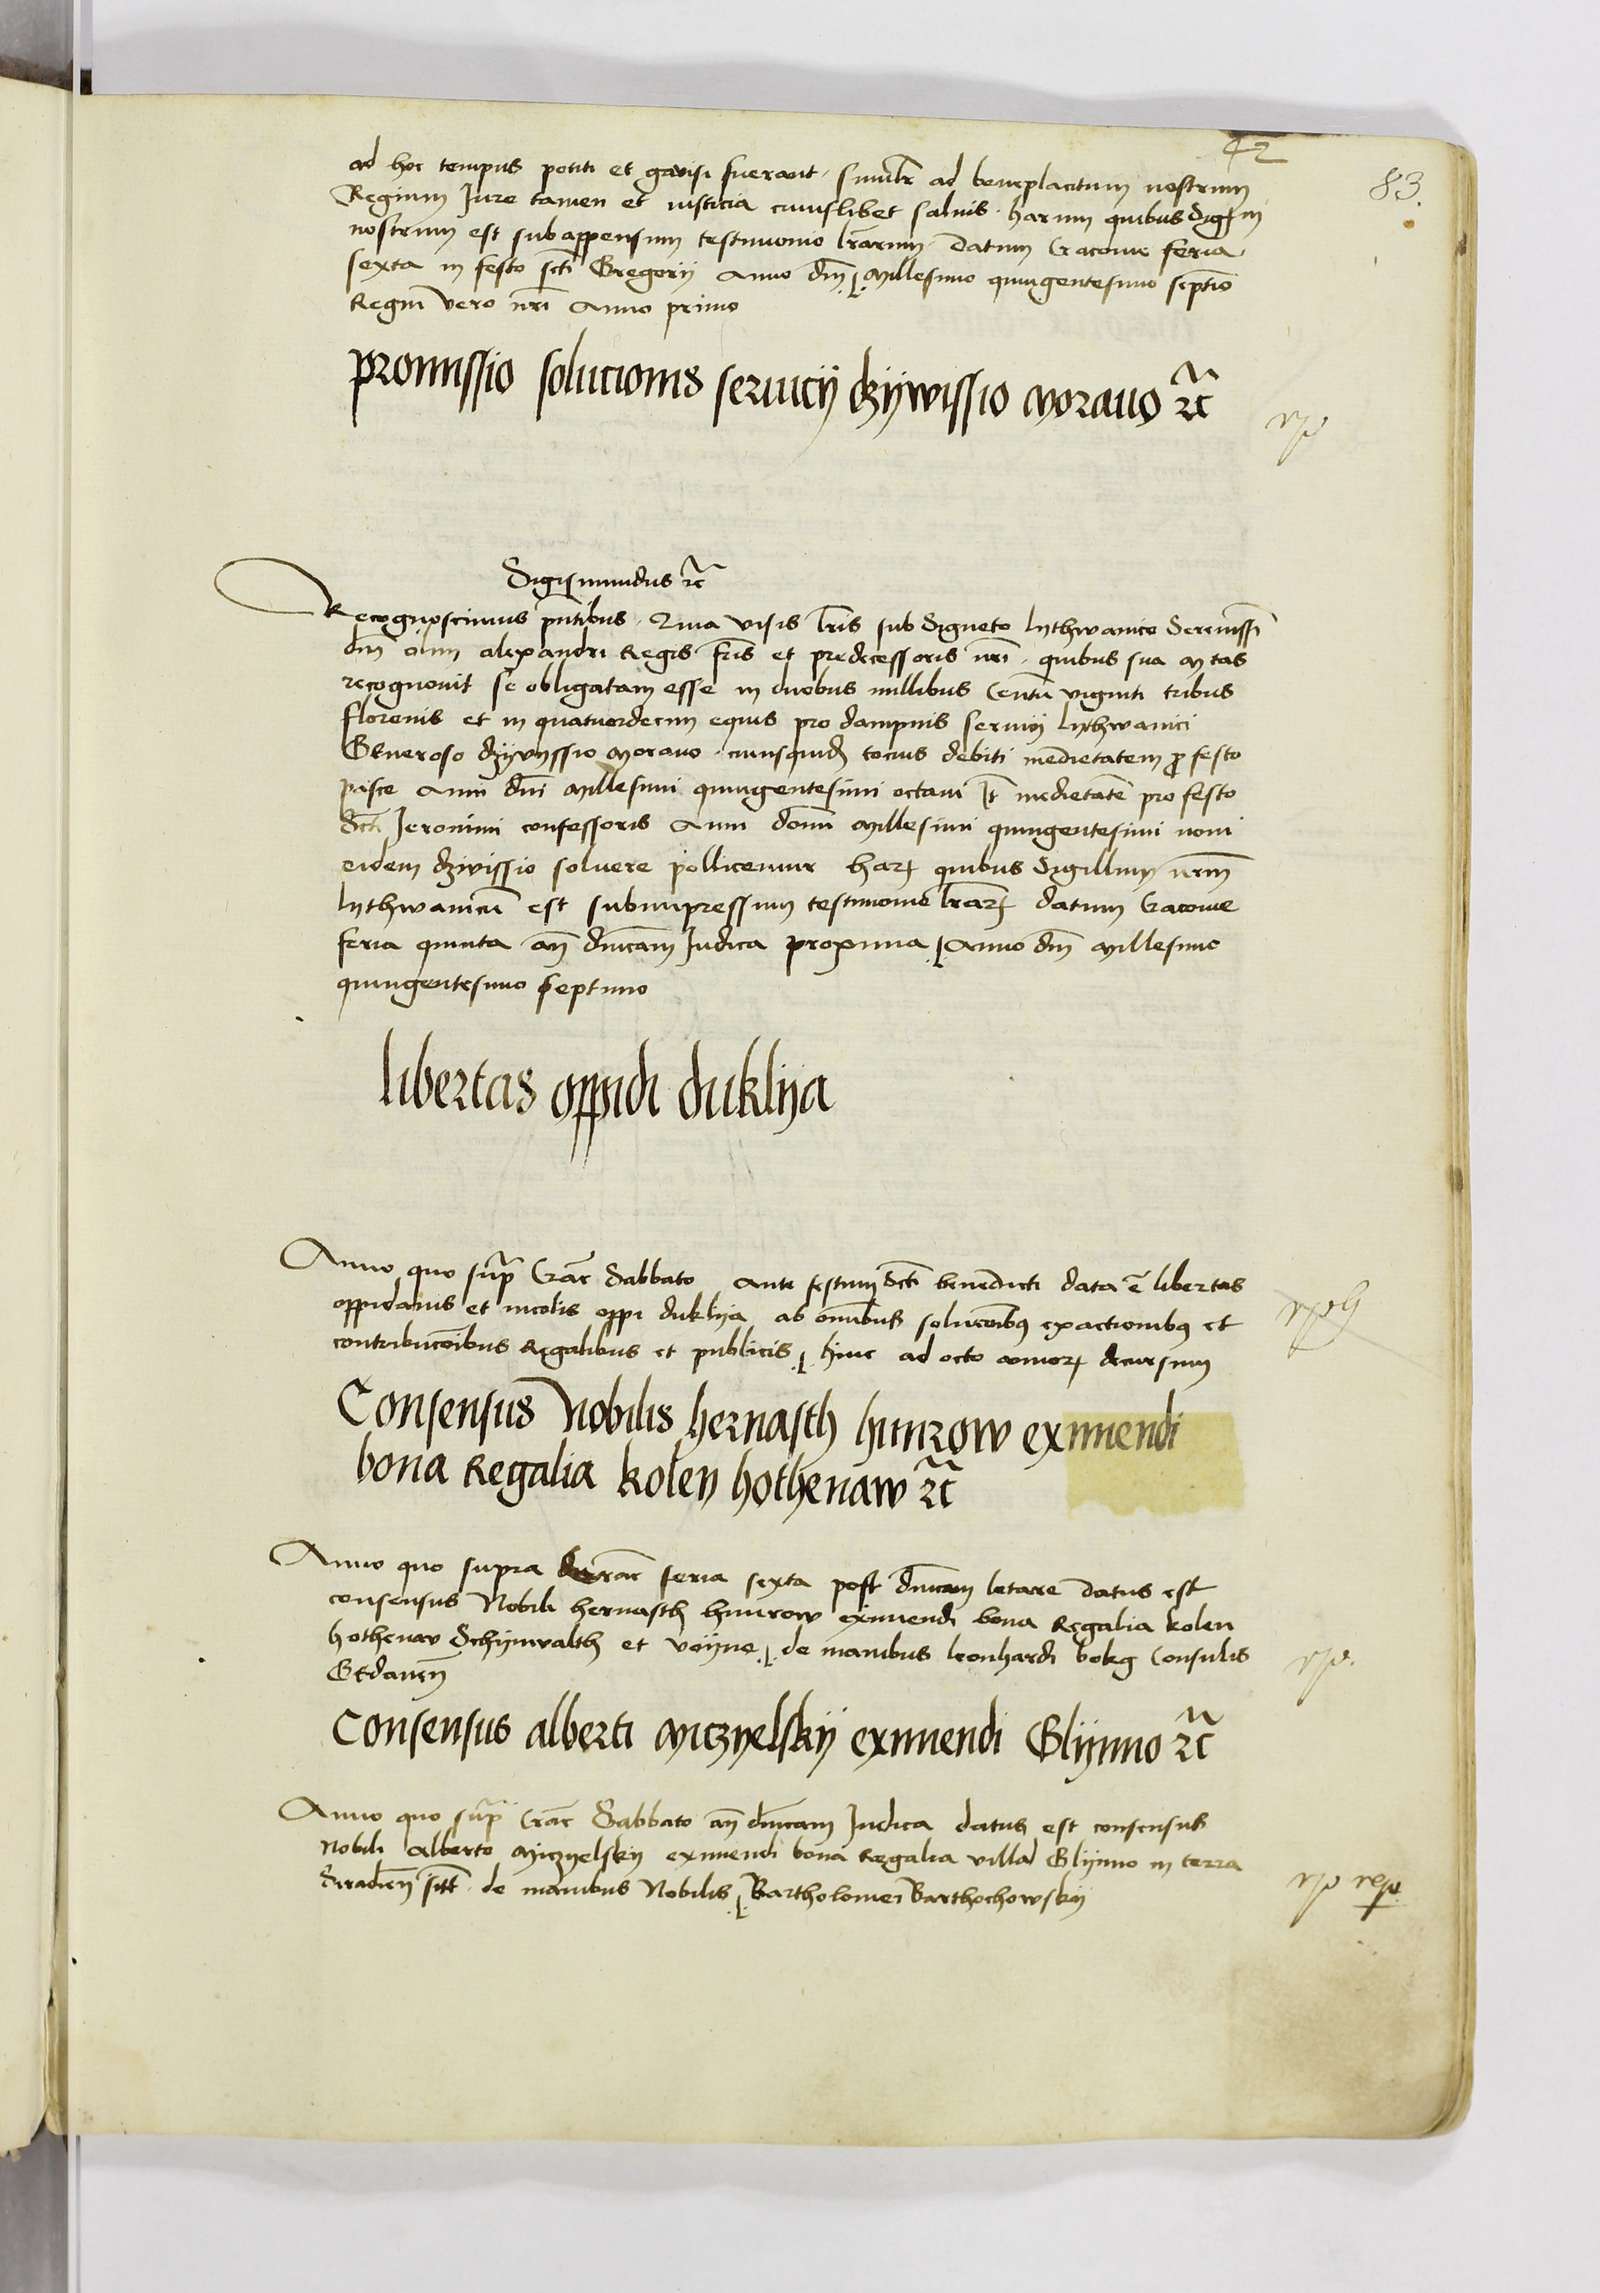 42
83.
ad hoc tempus potiti et gavisi fuerant. simlr ad beneplacitum nostrum
Regium Iure tamen et iusticia cuiuslibet salvis. harum quibus Sigm
nostrum est subappensum testimonio lrarum. Datum Cracovie feria
sexta in festo scti Gregorij Anno dni Millesimo quingentesimo septio
Regni vero nri Anno primo
promissio solucionis servicij dzywissio moravo rc
Sigismundus rc
Recognoscimus pntibus. Quia visis lris sub Signeto lythwanico Serenissi
dni olim alexandri Regis fris et predecessoris nri. quibus sua Mtas
recognovit se obligatam esse in duobus millibus Centu viginti tribus
florenis et in quatuordecim equis pro dampnis servicij lythwanici
Generoso dzyvyssio Moravo. cuiusquid tocius debiti medietatem p festo
pasce Anni dni Millesimi quingentesimi octavi It medietate pro festo
Scti Ieronimi confessoris Anni domi Millesimi quingentesimi noni
eidem dzivissio solvere pollicemur har quibus Sigillum nrm
lythwanicu est subimpressum testimonio lrar datum Cracovie
feria quinta an dnicam Iudica proxima Anno dni Millesimo
quingentesimo septimo
libertas oppidi duklija
Anno quo supr Crac Sabbato ante festum Scti benedicti data e libertas
oppidanis et incolis oppi duklija ab omibus solucoibus exactionibus et
contribucoibus Regalibus et publicis hinc ad octo annor decursum
Consensus Nobilis hernasth himrow eximendi
bona Regalia kolen hothenaw rc
Anno quo supra Crac feria sexta post dnicam letare datus est
consensus Nobili hernasth himrow eximendi bona Regalia kolen
hothenav Schijnvalth et voijne de manibus leonhardi bokg Consulis
Gedanen
Consensus alberti Miczyelskij eximendi Glijnno rc
Anno quo supr Crac Sabbato an dnicam Iudica datus est consensus
Nobili Alberto Miczyelskij eximendi bona Regalia villa Glijnno in terra
Siradien sitt. de manibus Nobilis Bartholomei Barthochowskij